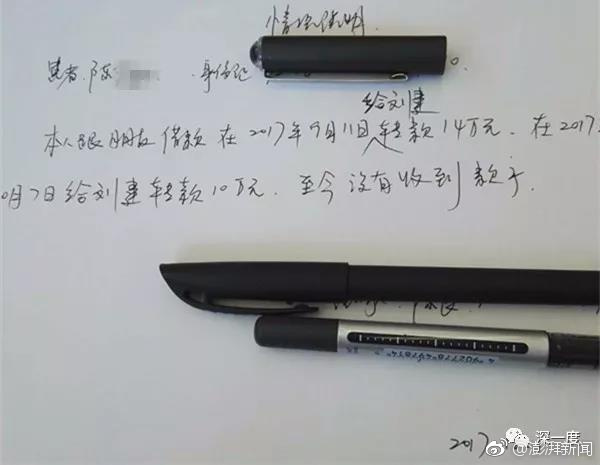 情况说明
患者.陈 身份证
给刘建
本人跟朋友借款在2017年9月11日转款14万元.在2017.
0月7日给刘建转款10万元.至今没有收到款子.
2017
深一度
@澎湃新闻